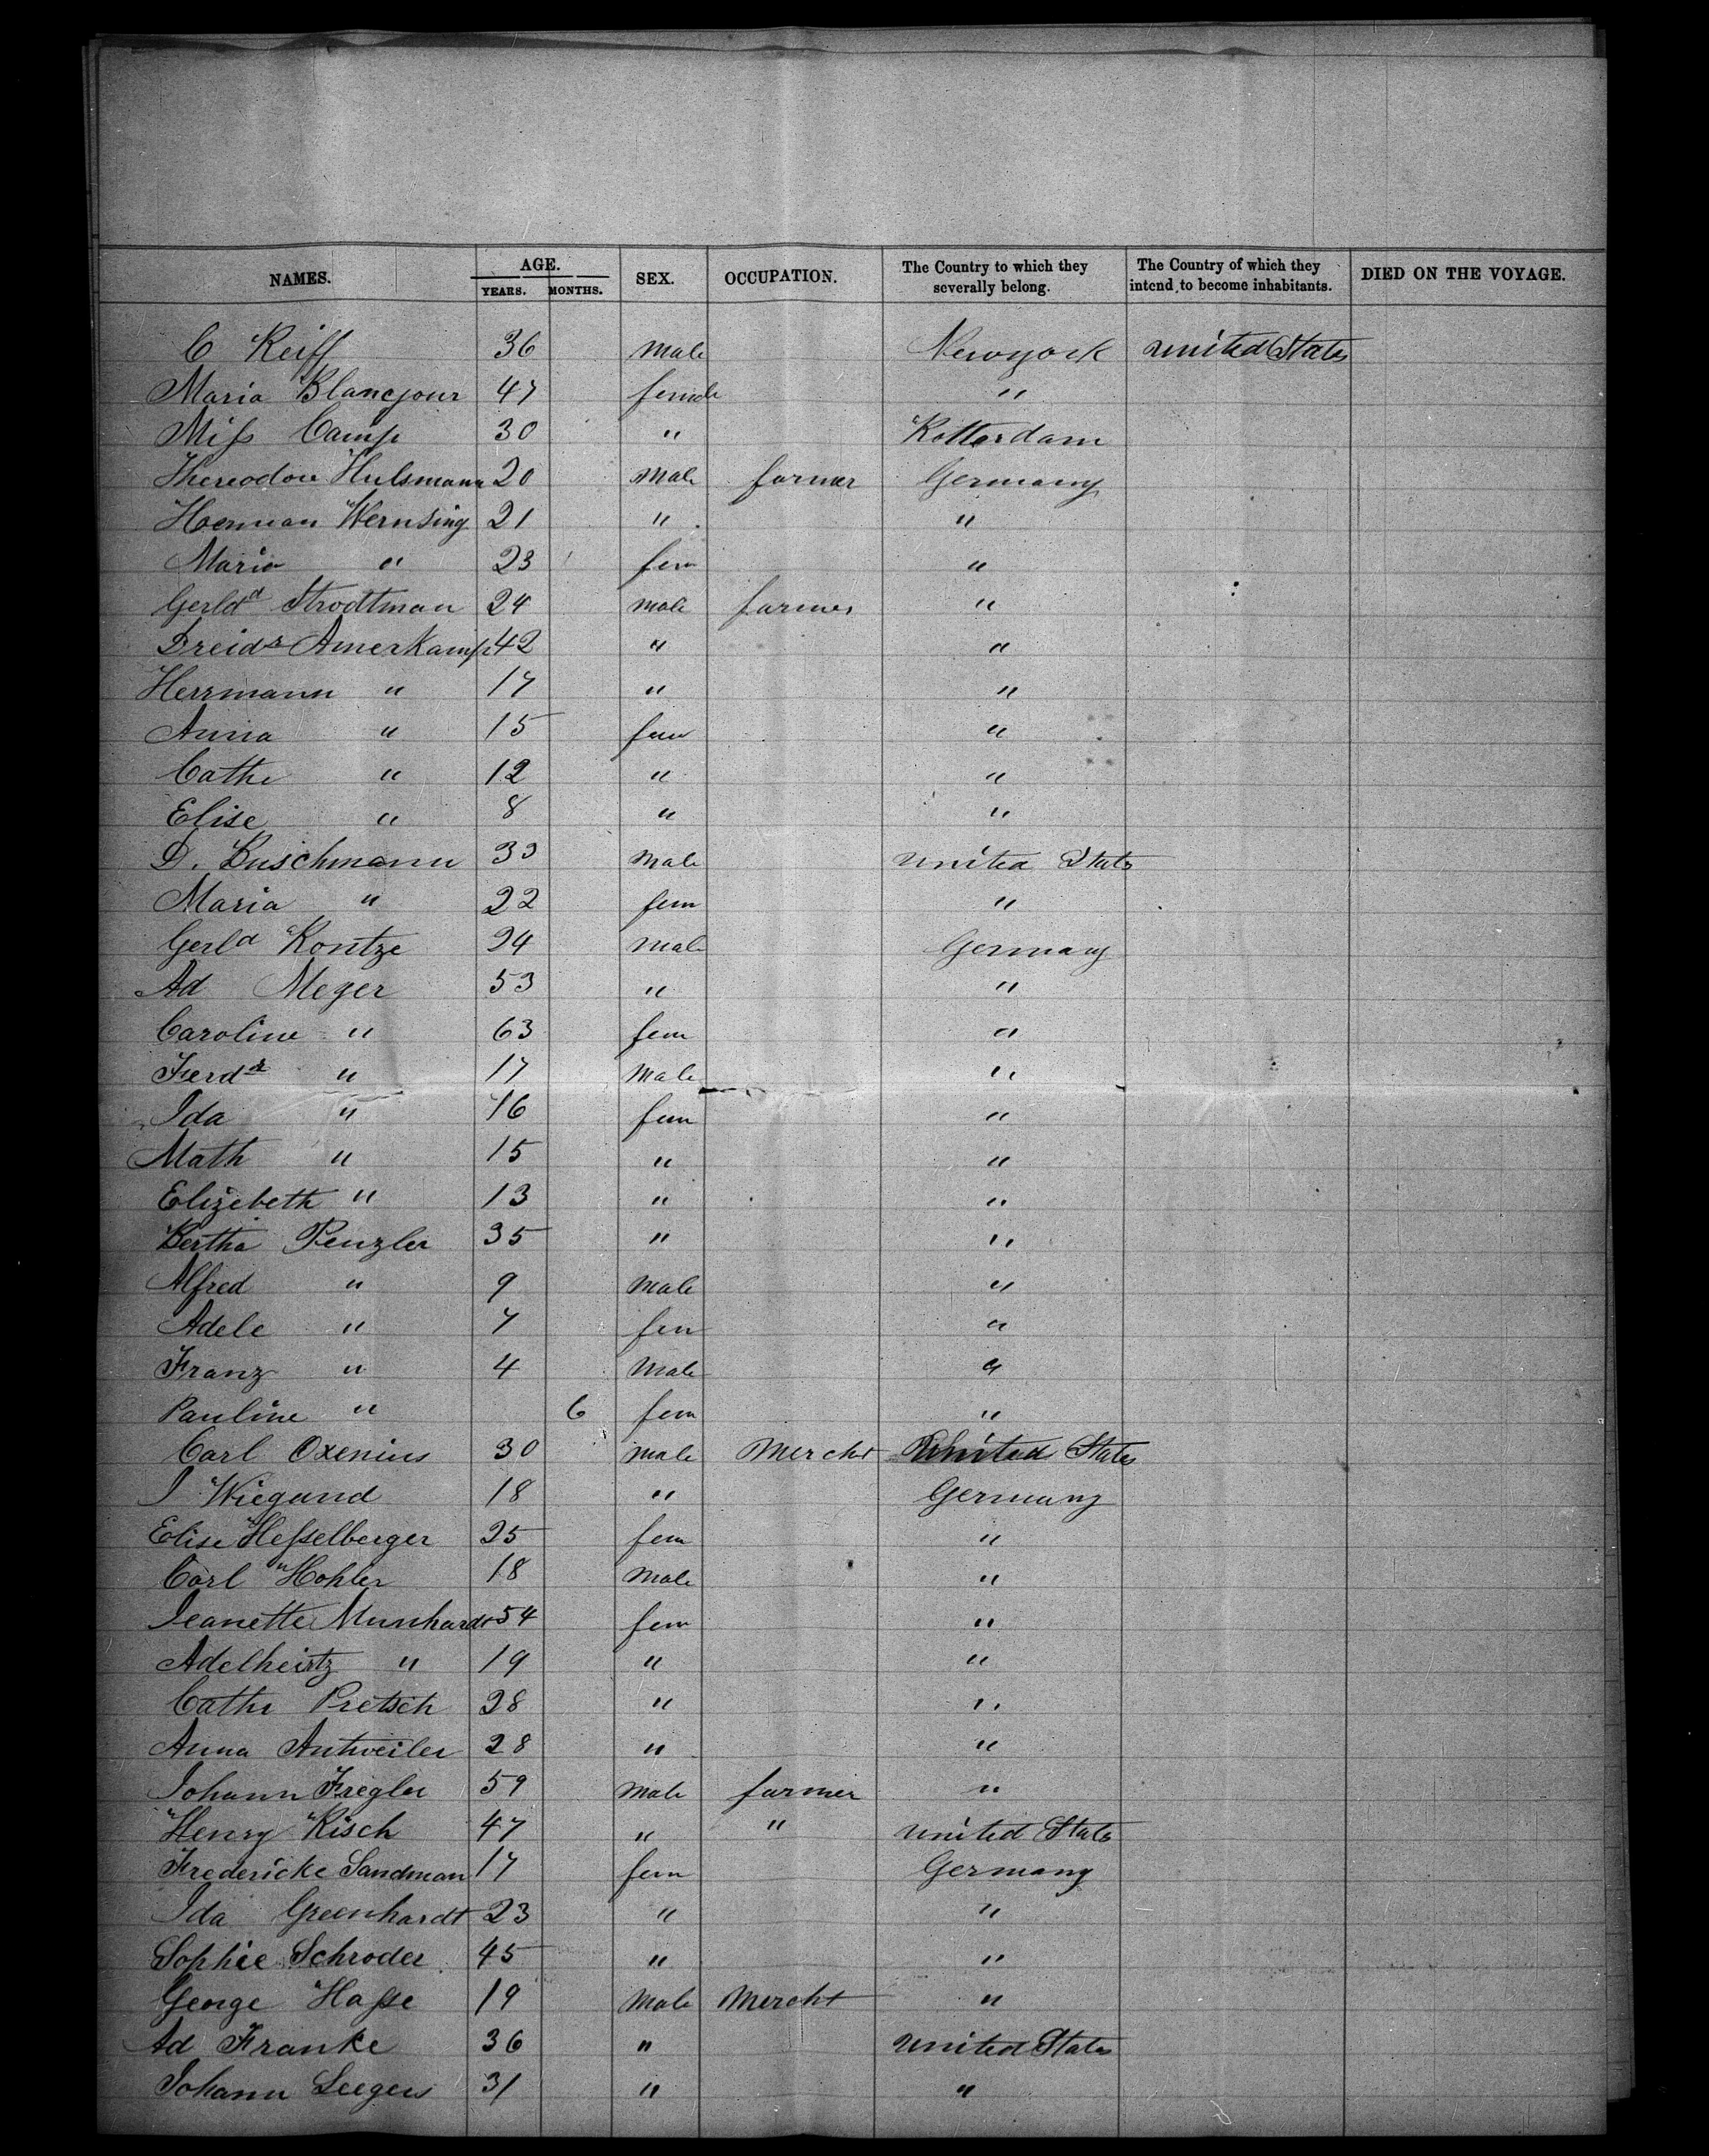 NAMES. AGE. YEARS. MONTHS. SEX. OCCUPATION. The Country to which they severally belong. The Country of which they intend to become inhabitants. DIED ON THE VOYAGE.
C Reiff 36 Male Newyork United States
Maria Blancjour 47 female "
Miss Camp 30 " Rotterdam
Thereodore Hulsmann 20 Male farmer Germany
Herman Wernsing 21 " "
Maria " 23 fem "
Gerhd Strodtman 24 male farmer "
Amerkamp 42 " "
Herrmann " 17 " "
Anna " 15 fem "
Cathe " 12 " "
Elise " 8 " "
D. Buschmann 33 Male United States
Maria " 22 fem "
Gerhd Kontze 24 Male Germany
Ad Meyer 53 " "
Caroline " 63 fem "
Ferdr " 17 Male "
Ida " 16 fem "
Math " 15 " "
Elizebeth " 13 " "
Bertha Penzler 35 " "
Alfred " 9 Male "
Adele " 7 fem "
Franz " 4 Male "
Pauline " 6 fem "
Carl Oxenius 30 male Mercht United States
J Wiegand 18 " Germany
Elise Hesselberger 25 fem "
Carl Hohler 18 Male "
Jeanette Munhardt 54 fem "
Adelheirtz " 19 " "
Cathe Pretsch 28 " "
Anna Antweiler 28 " "
Johann Friegler 59 Male farmer "
Henry Kisch 47 " " United States
Fredericke Sandman 17 fem Germany
Ida Greenhardt 23 " "
Sophie Schroder 45 " "
George Hasse 19 Male Mercht "
Ad Franke 36 " United States
Johann Seegers 31 " "